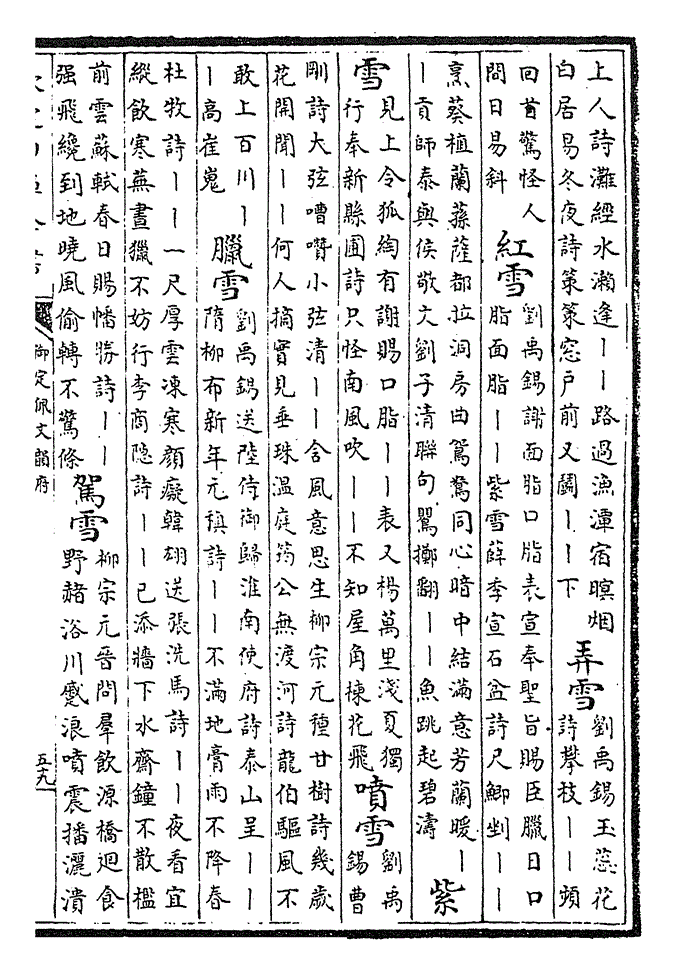 上人詩灘經水瀨逢丨丨路過漁潭宿暝烟
白居易冬夜詩策策窓户前又聞丨丨下
弄雪
劉禹錫玉蕊花
詩攀枝丨丨頻
回首驚怪人
問日易斜
紅雪
劉禹錫謝面脂口脂表宣奉聖旨賜臣臘日口
脂面脂丨丨紫雪薛季宣石盆詩尺鯽剉丨丨
烹葵植蘭蓀薩都拉洞房曲鴛鴦同心暗中結滿意芳蘭暖丨
丨貢師泰與侯敬文劉子清聯句鸎擲翻丨丨魚跳起碧濤
紫
雪
見上令狐綯有謝賜口脂丨丨表又楊萬里淺夏獨
行奉新縣圃詩只怪南風吹丨丨不知屋角楝花飛
噴雪
劉禹
錫曹
剛詩大弦嘈囋小弦清丨丨含風意思生柳宗元種甘樹詩幾歲
花開聞丨丨何人摘實見垂珠溫庭筠公無渡河詩龍伯驅風不
敢上百川丨
丨高崔嵬
臘雪
劉禹錫送陸侍御歸淮南使府詩泰山呈丨丨
隋柳布新年元稹詩丨丨不滿地膏雨不降春
杜牧詩丨丨一尺厚雲凍寒顔癡韓翃送張洗馬詩丨丨夜看宜
縱飲寒蕪晝獵不妨行李商隐詩丨丨已添牆下水齋鐘不散檻
前雲蘇軾春日賜幡勝詩丨丨
强飛繞到地曉風偷轉不驚條
駕雪
柳宗元晉問羣飲源橋迴食
野赭浴川蹙浪噴震播灑潰
御定佩文韻府
五十九